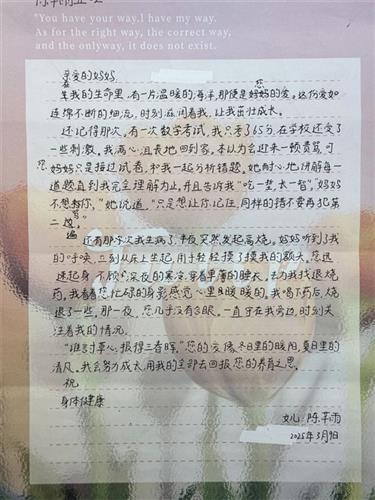 "You have your way.I have my way.
As for the right way, the correct way,
and the onlyway, it does not exist.
亲爱的妈妈
在我的生命里,有一片温暖的海洋,那便是您的爱。这份爱如
连绵不断的细流,时刻滋润着我,让我茁壮成长。
还记得那次,有一次数学考试,我只考了65分,在学校还受了
一些刺激。我满心沮丧地回到家。本以为会迎来一顿责骂,可
您只是接过试卷,和我一起分析错题。她耐心地讲解每一
道题直到我完全理解为止。并且告诉我"吃一堑,长一智","妈妈
不想骂你,"她说道,"只是想让你记住,同样的错不要再犯第
二遍。"
还有那次我生病了,半夜突然发起高烧。妈妈听到了我
的呼唤,立刻从床上坐起,用手轻轻摸了摸我的额头。您迅
速起身,不顾深夜的寒冷,穿着单薄的睡衣,去为我找退烧
药。我看着您忙碌的身影感觉心里暖暖的。我喝下药后,烧
退了一些,那一夜,您几乎没有合眼。一直守在我旁边,时刻关
注着我的情况。
"谁言寸草心,报得三春晖。"您的爱像冬日里的暖阳,夏日里的
清风。我会努力成长,用我的全部去回报您的养育之恩。
祝
身体健康
女儿:陈芊雨
2025年3月9日